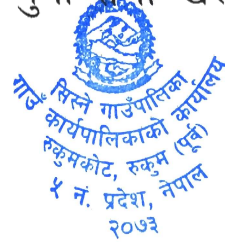 सिस्ने गाउँपालिका
गाउँ कार्यपालिकाको कार्यालय
रुकुमकोट, रुकुम (पूर्व)
५ नं. प्रदेश, नेपाल
२०७३